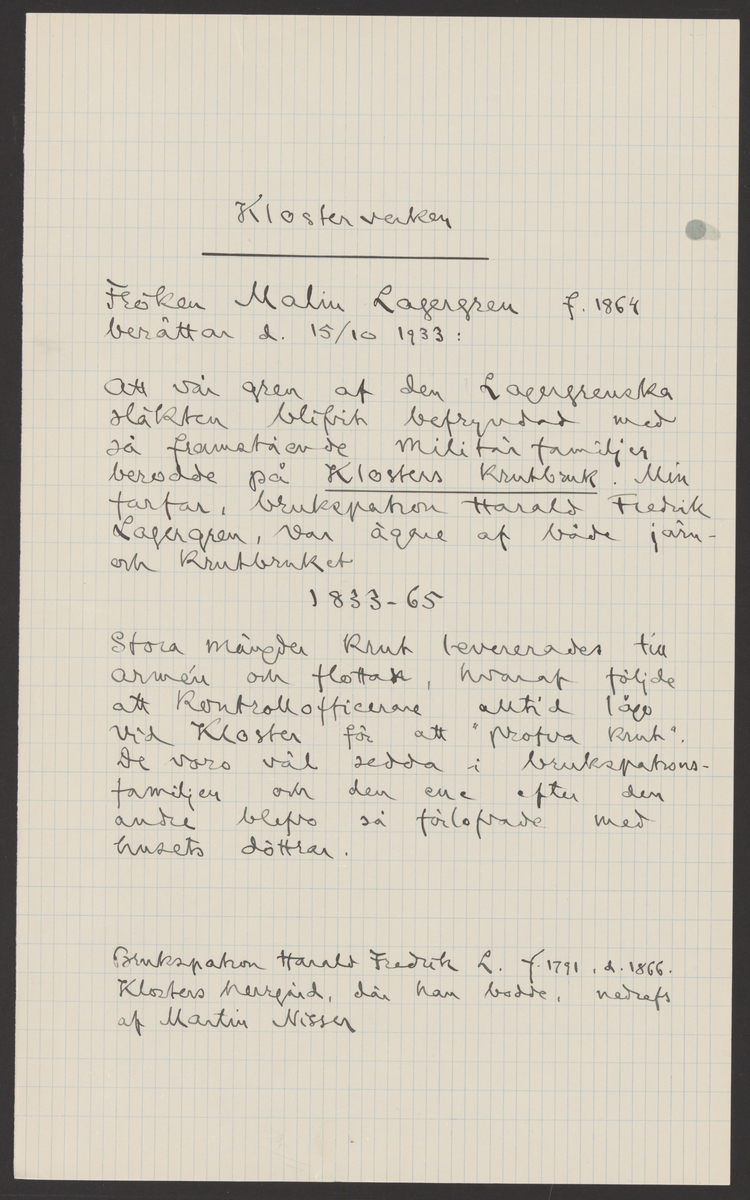 Klosterverken
Fröken Malin Lagergren f. 1864
berättar d. 15/10 1933:
Att vår gren af den Lagergrenska
släkten blifvit befryndad med
så framstående militärfamiljer
berodde på Klosters Krutbruk. Min
farfar, brukspatron Harald Fredrik
Lagergren, var ägare af både järn-
och krutbruket
1833-65
Stora mängder krut levererades till
armén och flottan, hvaraf följde
att kontrollofficerare alltid lågo
vid Kloster för att "profva krut".
De voro väl sedda i brukspatrons-
familjen och den ene efter den
andre blefvo så förlofvade med
husets döttrar.
Brukspatron Harald Fredrik L. f. 1791, d. 1866.
Klosters herrgård, där han bodde, nedrefs
af Martin Nisser